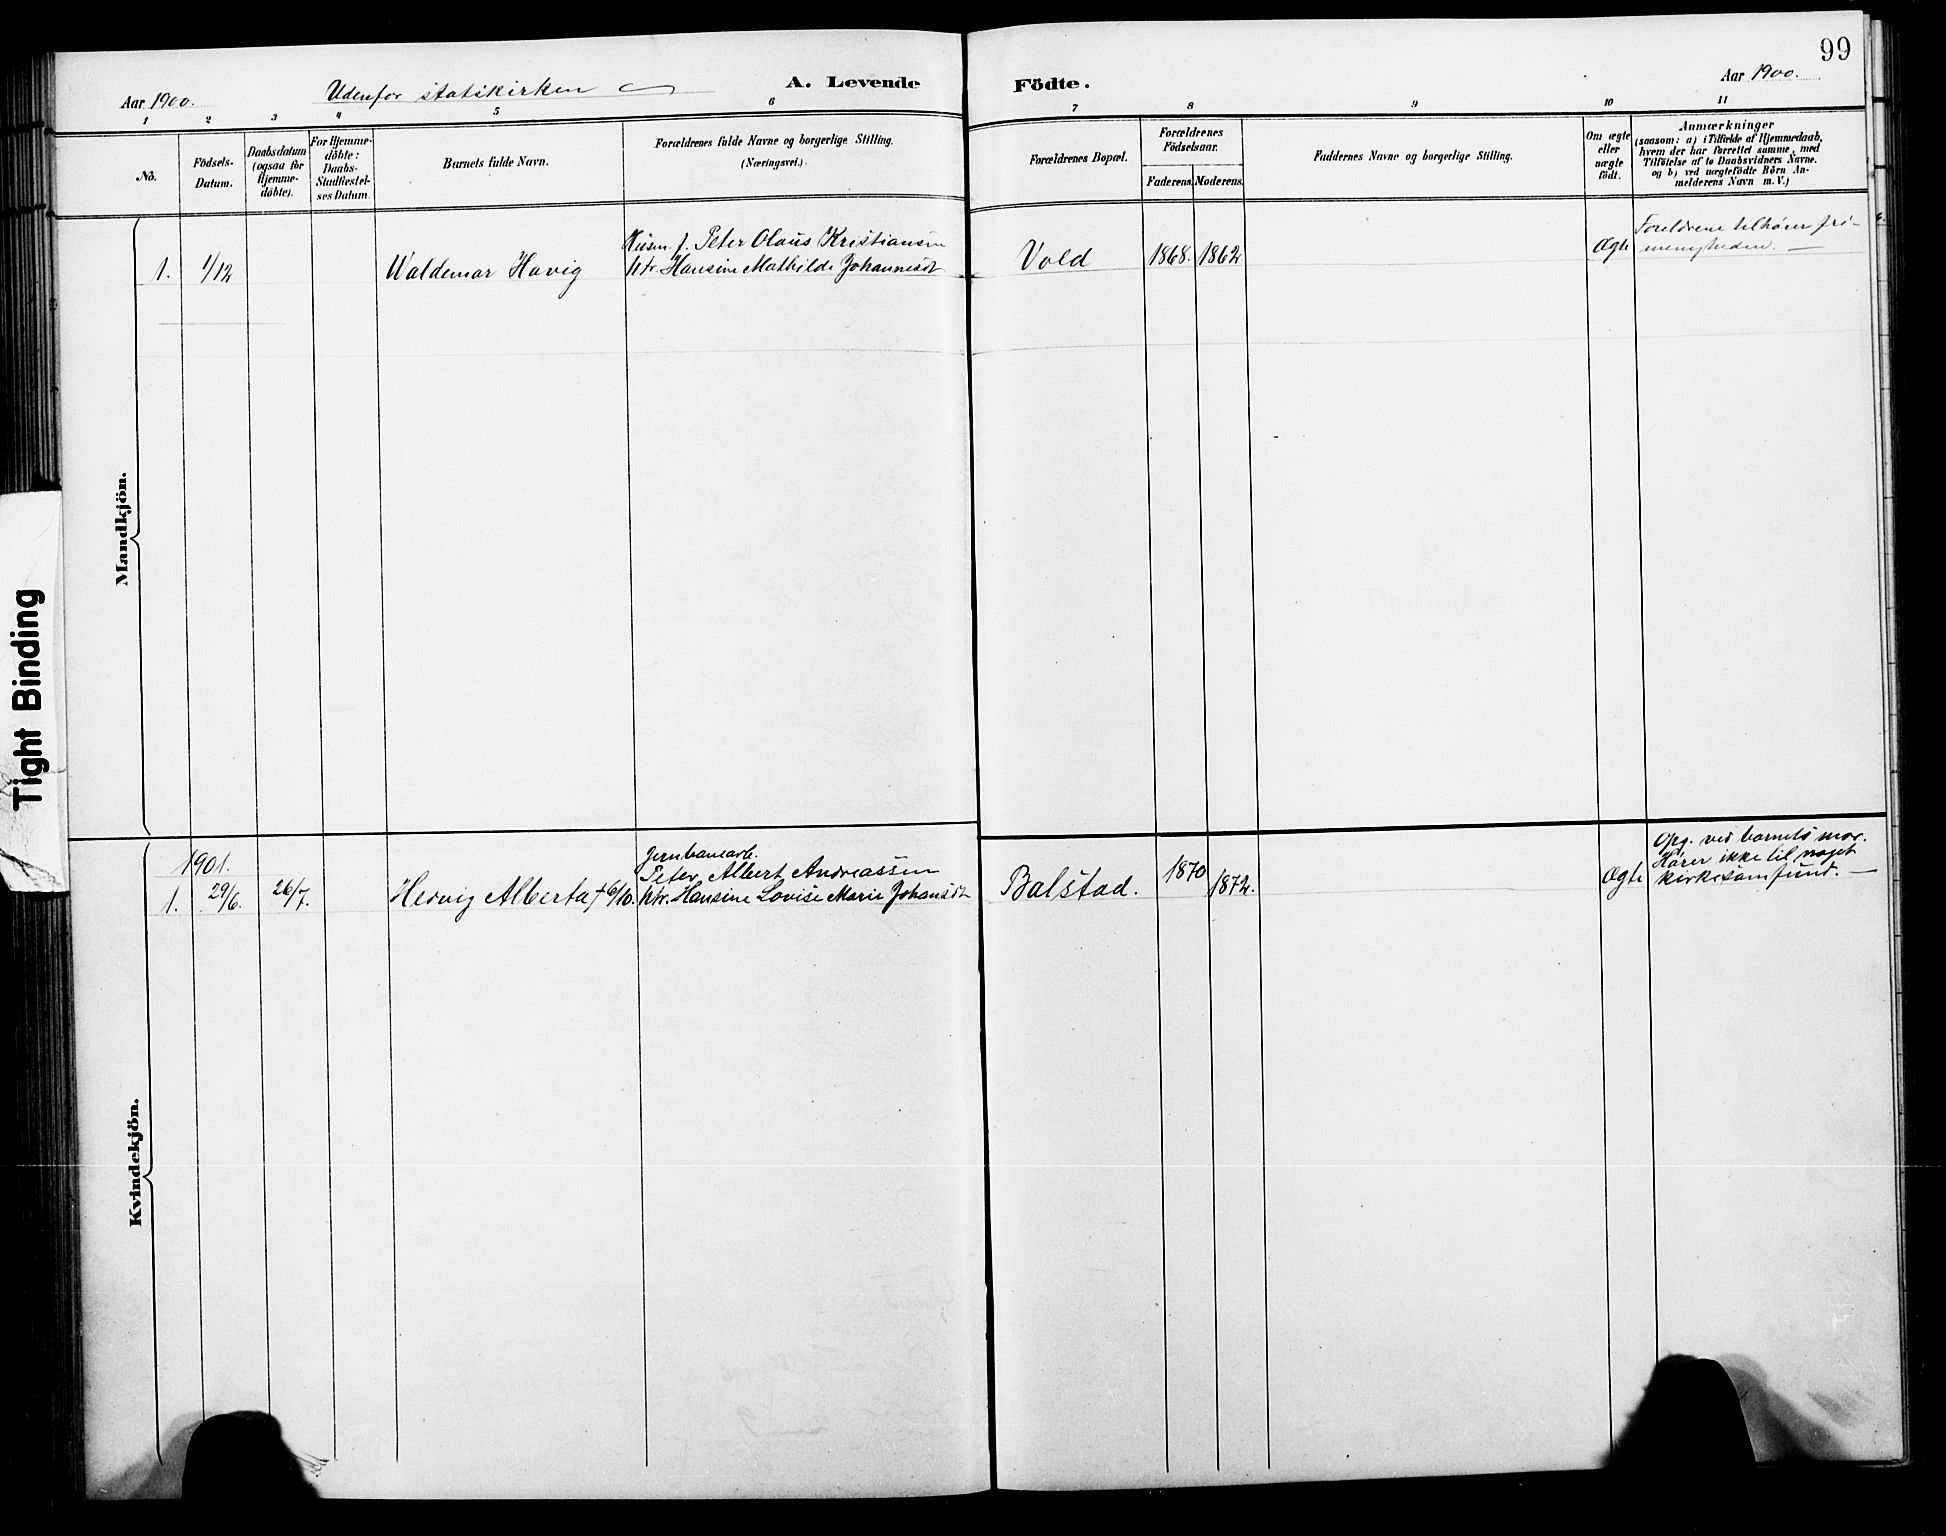 99
Aar 1900.
Udenfor statskirken
A. Levende
Födte.
Aar 1900.
1 2 3 4 5 6 7 8 9 10 11
No.
Födsels-
Datum.
Daabsdatum
(ogsaa for
Hjemme-
döbte).
For Hjemme-
döbte:
Daabs-
Stadfæstel-
ses Datum.
Barnets fulde Navn.
Forældrenes fulde Navne og borgerlige Stilling.
(Næringsvei.)
Forældrenes Bopæl.
Forældrenes
Födselsaar.
Faderens. Moderens.
Faddernes Navne og borgerlige Stilling.
Om ægte
eller
uægte
födt.
Anmærkninger
(saasom: a) i Tilfælde af Hjemmedaab,
hvem der har forrettet samme, med
Tilföielse af to Daabsvidners Navne.
og b) ved uægtefödte Börn An-
melderens Navn m. V.)
Mandkjön.
Husm. f. Peter Olaus Kristiansen
1. 1/12 Waldemar Havig htr. Hansine Mathilde Johannesdt
Vold 1868. 1862 Ægte
Foreldrene tilhører fri-
menigheden. —
Kvindekjön.
1901.
Jernbanearb.
Peter Albert Andreassen
1. 29/6. 26/7. Hervig Alberta † 6/10. htr. Hansine Lovise Marie Johansdt
Balstad. 1870 1872. Ægte
Opg. ved barnets mor.
Hører ikke til noget
kirkesamfund. —
Tight Binding